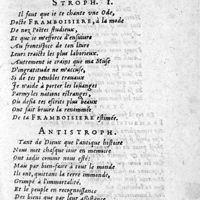 STROPH. I.
Il faut que je te chante une Ode,
Docte FRAMBOISIERE, à la mode
De nos Poëtes studieux,
Et que je m'efforce d'ensuivre
Au frontispice de ton livre
Leurs traicts les plus laborieux.
Autrement je crains que ma Muse
D'ingratitude ne m'accuse,
Si de tes penibles travaux
Je n'aide à porter les loüanges
Parmy les nations estranges,
Où desja tes escrits plus beaux
Ont fait bruire la renommée
De ta FRAMBOISIERE estimée.
ANTISTROPH.
Tant de Dieux que l'antique histoire
Nous met chaque jour en memoire
Ont jadis comme nous esté:
Mais par bien-faire à tout le monde
Ils ont, quittans la terre immonde,
Grimpé à l'immortalité,
Et le peuple en recognoissance
Des biens que par leur assistance